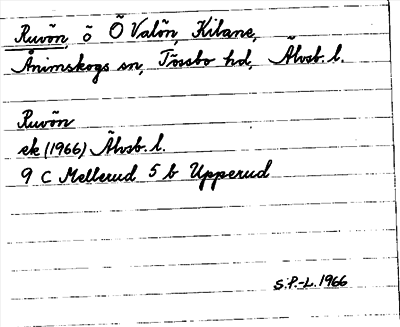 Ruvön, ö Ö Valön, Kilane,
Ånimskogs sn, Tössbo hd, Älvsb. l.
Ruvön
ek (1966) Älvsb. l.
9 C Mellerud 5 b Upperud
S.P.-L. 1966